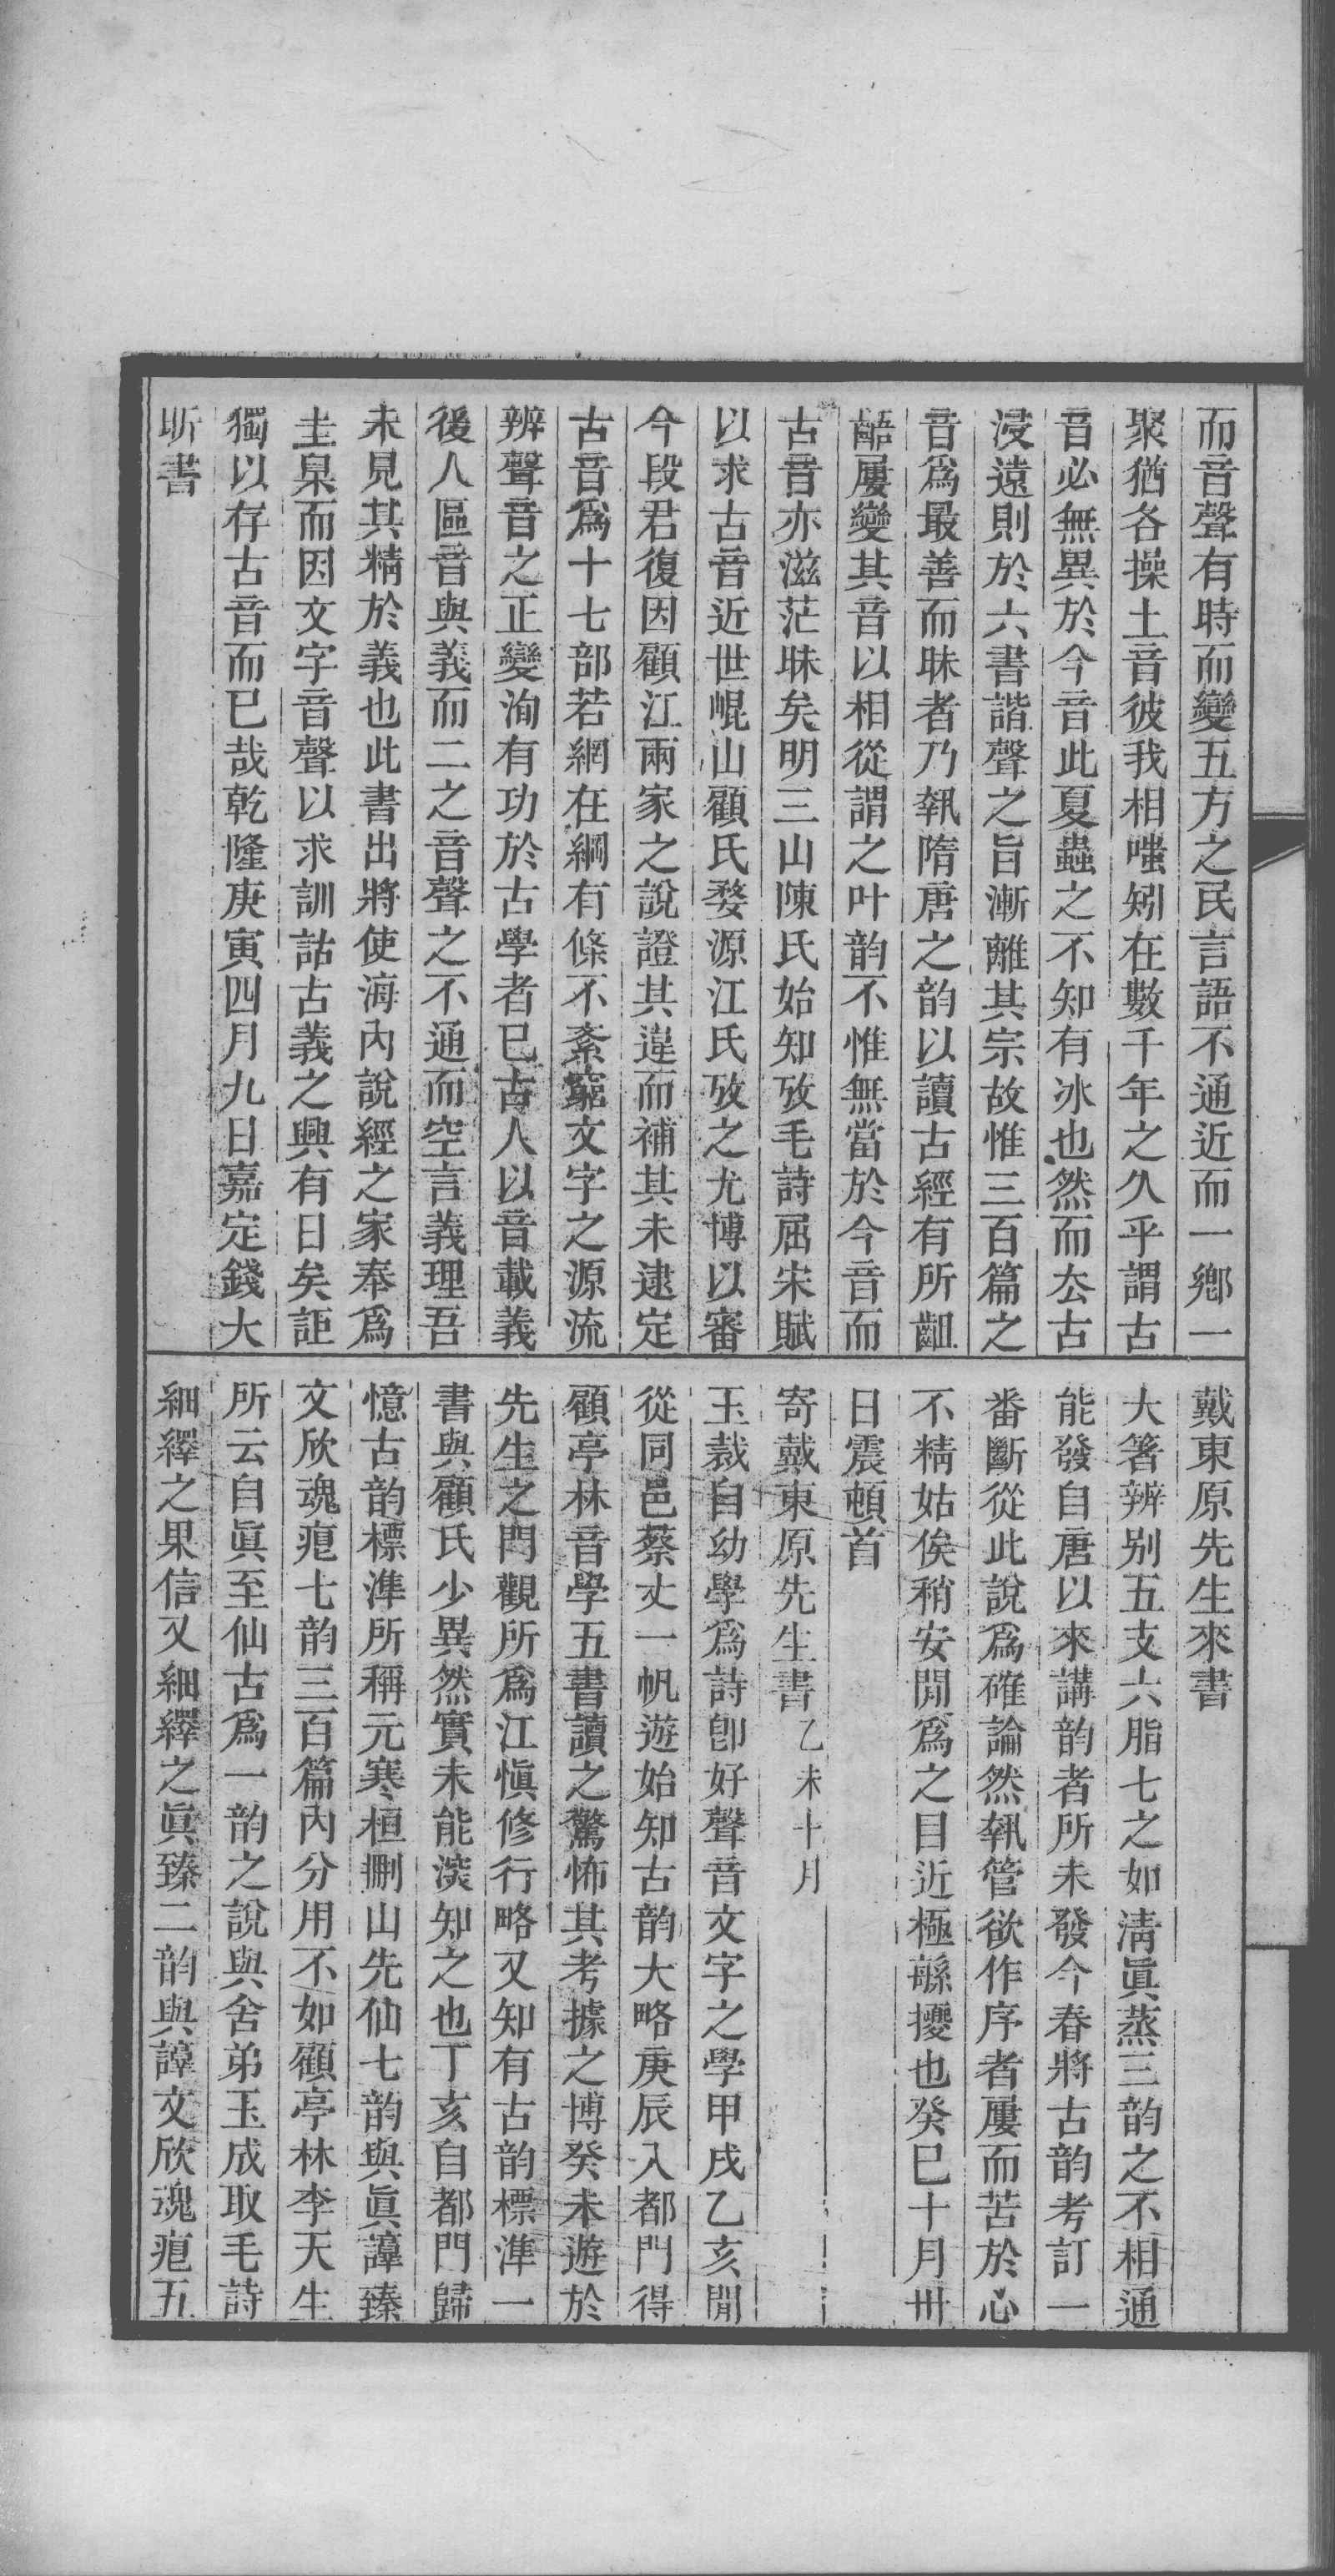 而音聲有時而變五方之民言語不通近而一鄉一
聚猶各操土音彼我相嗤矧在數千年之久乎謂古
音必無異於今音此夏蟲之不知有冰也然而去古
浸遠則於六書諧聲之旨漸離其宗故惟三百篇之
音爲最善而昧者乃執隋唐之韵以讀古經有所齟
齬屢變其音以相從謂之叶韵不惟無當於今音而
古音亦滋茫昧矣明三山陳氏始知攷毛詩屈宋賦
以求古音近世崐山顧氏婺源江氏攷之尤博以審
今段君復因顧江兩家之說證其違而補其未逮定
古音爲十七部若網在綱有條不紊窮文字之源流
辨聲音之正變洵有功於古學者已古人以音載義
後人區音與義而二之音聲之不通而空言義理吾
未見其精於義也此書出將使海內說經之家奉爲
圭臬而因文字音聲以求訓詁古義之興有日矣詎
獨以存古音而已哉乾隆庚寅四月九日嘉定錢大
昕書
戴東原先生來書
大箸辨别五支六脂七之如淸眞蒸三韵之不相通
能發自唐以來講韵者所未發今春將古韵考訂一
番斷從此說爲確論然執管欲作序者屢而苦於心
不精姑俟稍安閒爲之目近極繇擾也癸巳十月卅
日震頓首
寄戴東原先生書乙未十月
玉裁自幼學爲詩卽好聲音文字之學甲戌乙亥閒
從同邑蔡丈一帆遊始知古韵大略庚辰入都門得
顧亭林音學五書讀之驚怖其考據之博癸未遊於
先生之門觀所爲江愼修行略又知有古韵標準一
書與顧氏少異然實未能深知之也丁亥自都門歸
憶古韵標準所稱元寒桓刪山先仙七韵與眞諄臻
文欣魂痕七韵三百篇內分用不如顧亭林李天生
所云自眞至仙古爲一韵之說與舍弟玉成取毛詩
細繹之果信又細繹之眞臻二韵與諄文欣魂痕五